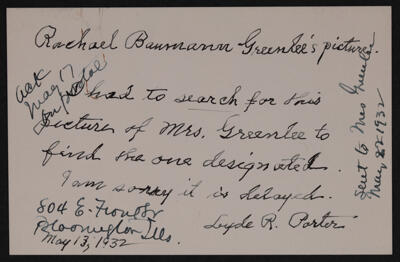 Rachael Baumann Greenlee's picture.
Ack
May 17
had to search for this
picture of Mrs. Greenlee to
find the one designated.
I am sorry it is delayed.
Lyde R. Porter
804 E. Front St
Bloomington Ills.
May 13, 1932
Sent to Mrs
May 22 1932